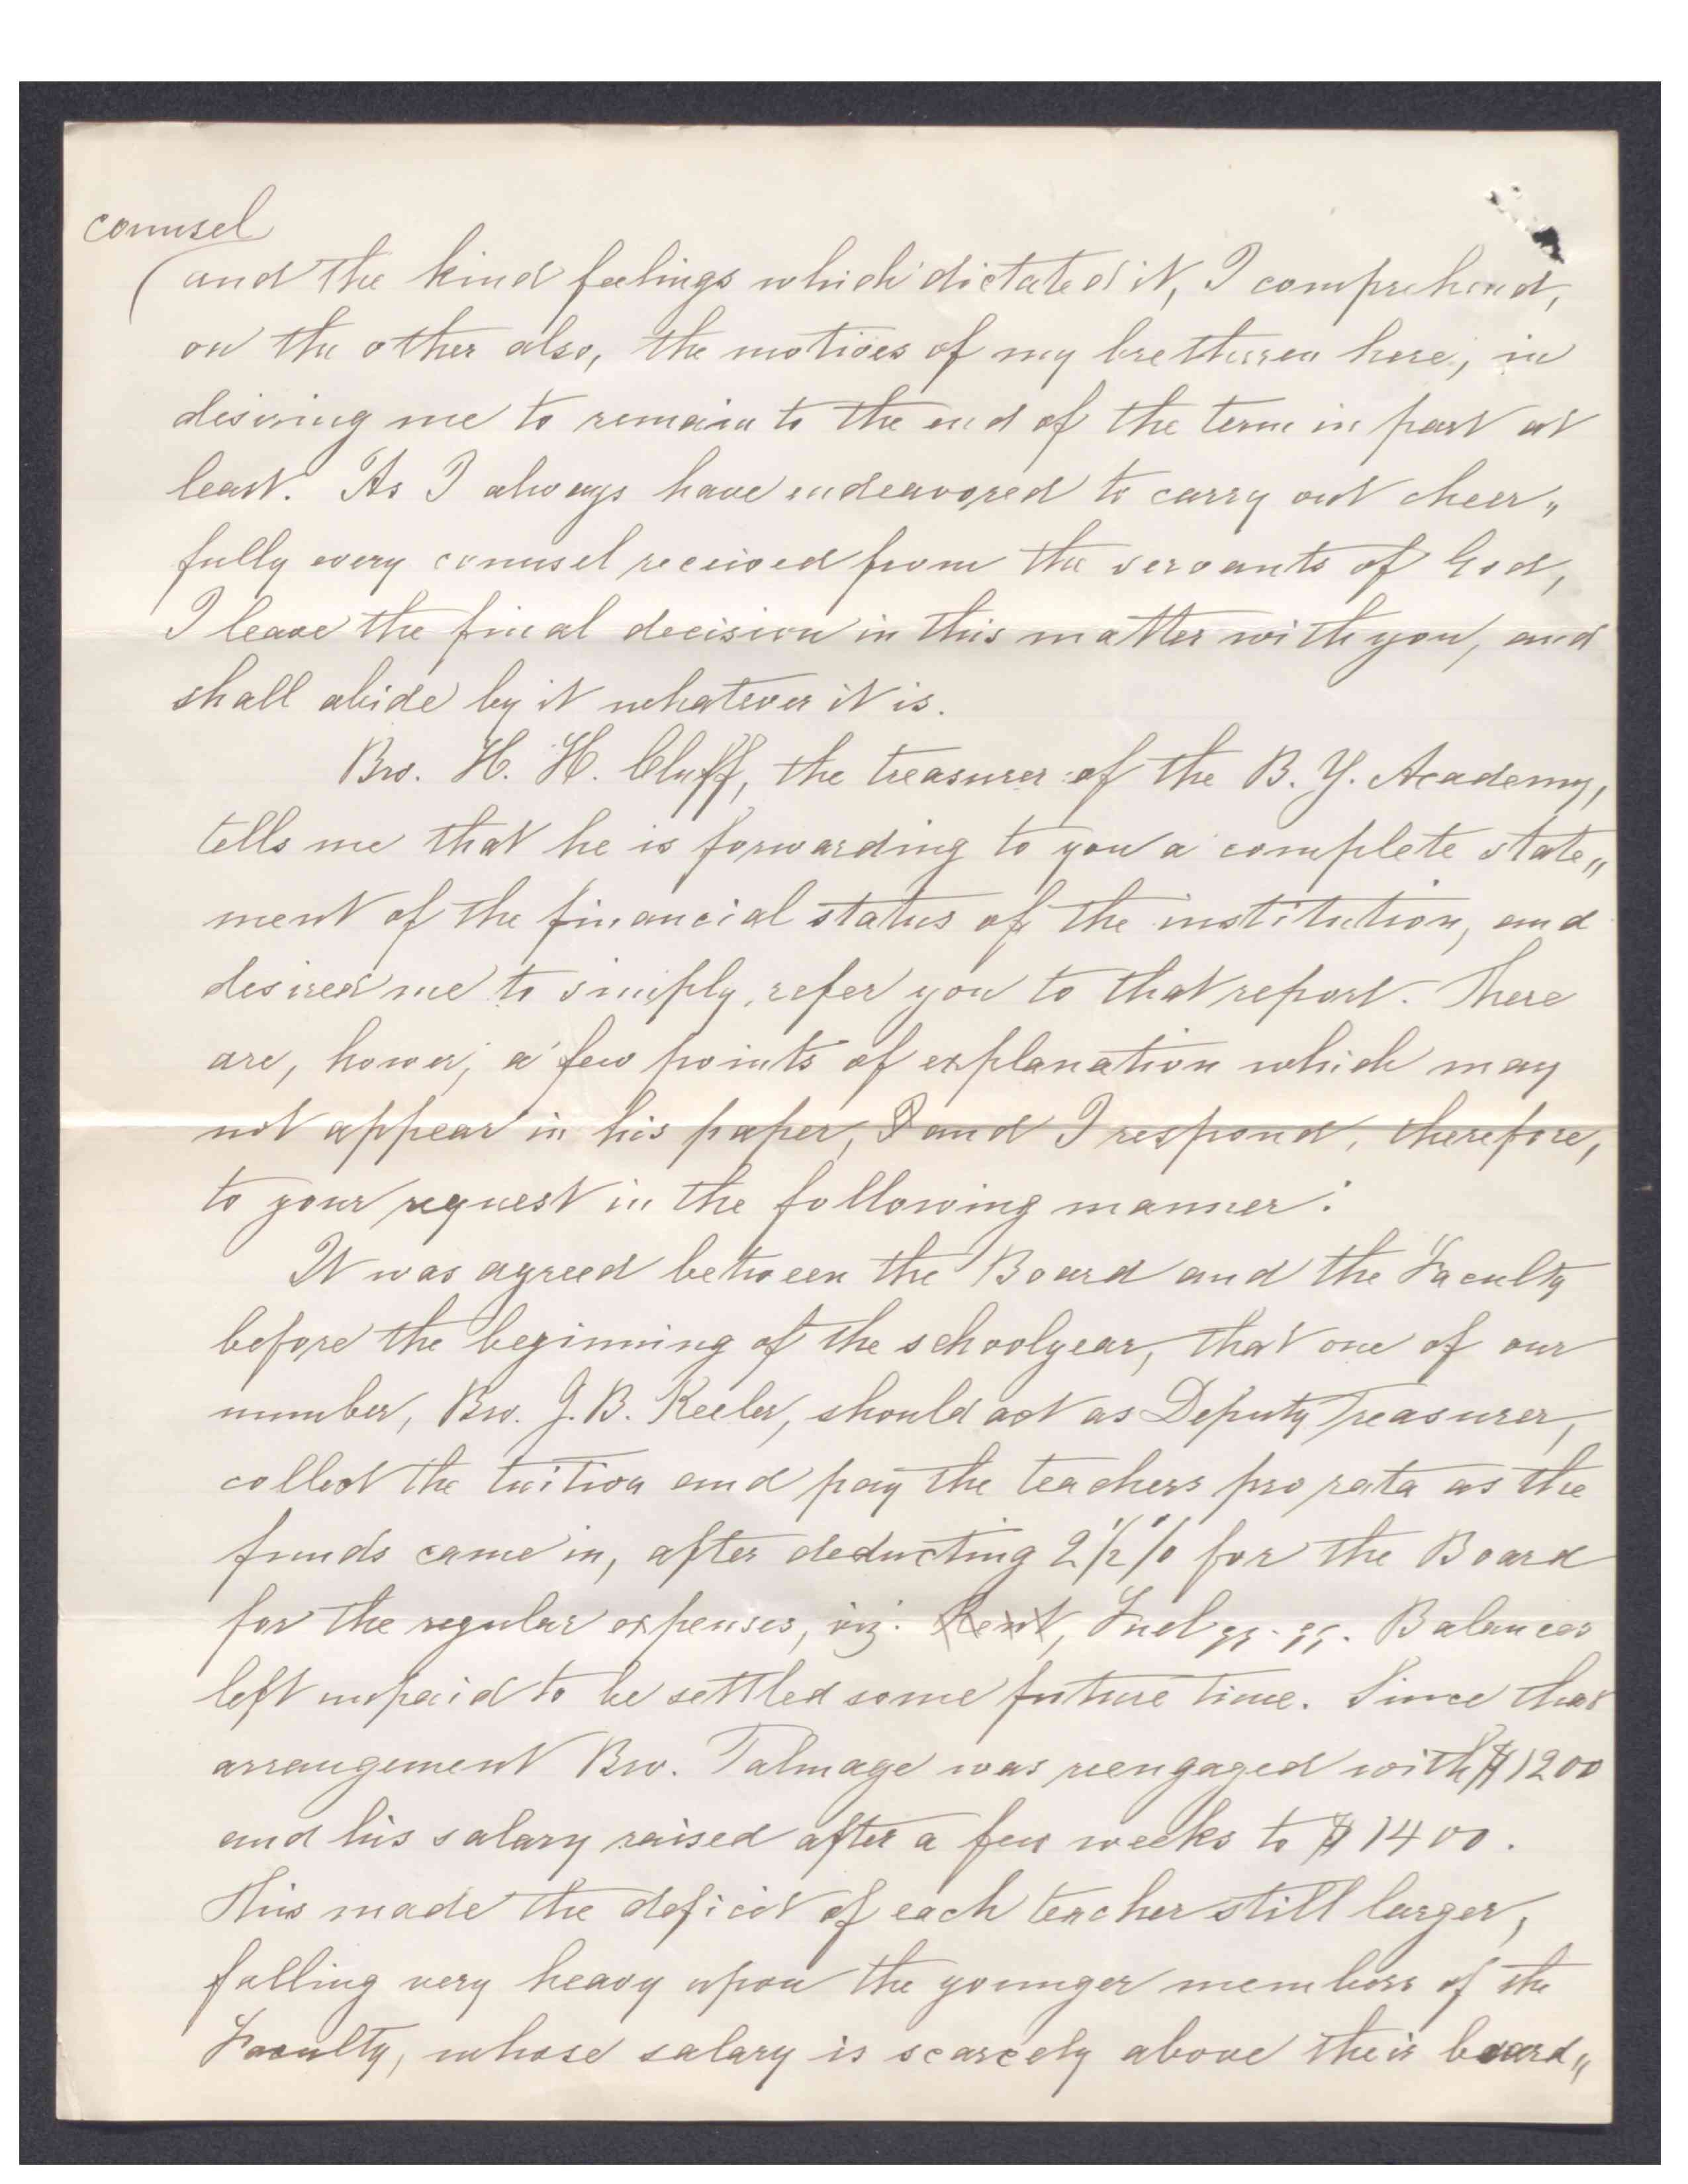 counsel
(and the kind feelings which dictated it, I comprehend,
on the other also, the motives of my brethren here, in
desiring me to remain to the end of the term in part at
least. As I always have endeavored to carry out cheer„
fully every counsel received from the servants of God,
I leave the final decision in this matter with you, and
shall abide by it whatever it is.
Bro. H. H. Cluff, the treasurer of the B. Y. Academy,
tells me that he is forwarding to you a complete state„
ment of the financial status of the institution, and
desired me to simply refer you to that report. There
are, hower, a few points of explanation which may
not appear in his paper, I and I respond, therefore,
to your request in the following manner:
It was agreed between the Board and the Faculty
before the beginning of the schoolyear, that one of our
number, Bro. J. B. Keeler, should act as Deputy Treasurer,
collect the tuition and pay the teachers pro rata as the
funds came in, after deducting 2½% for the Board
for the regular expenses, viz. Rent, Fuel . Balances
left unpaid to be settled some future time. Since that
arrangement Bro. Talmage was reengaged with $1200
and his salary raised after a few weeks to $1400.
This made the deficit of each teacher still larger,
falling very heavy upon the younger members of the
Faculty, whose salary is scarcely above their board„